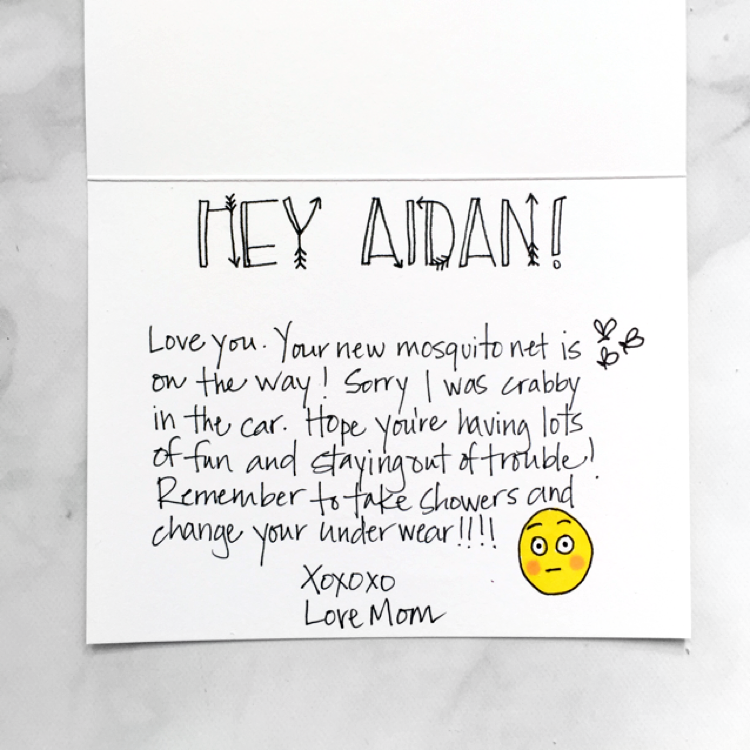 HEY AIDAN!
Love you. Your new mosquito net is
on the way! Sorry I was crabby
in the car. Hope you're having lots
of fun and staying out of trouble!
Remember to take showers and
change your underwear!!!!
Xoxoxo
Love Mom